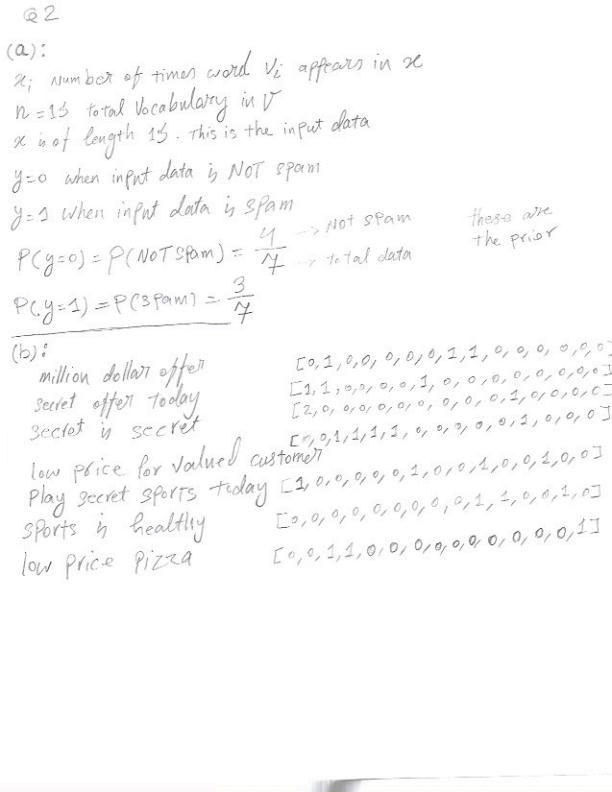 Q2
(a):
xi number of times word Vi appears in x
n = 15 total Vocabulary in V
x is of length 15. This is the input data
y=0 when input data is NOT spam
y=1 when input data is spam
P(y=0) = P(NOT Spam) = 4/7 --> Not spam --> total data these are the prior
P(y=1) = P(Spam) = 3/7
(b):
million dollar offer [0,1,0,0,0,0,0,1,1,0,0,0,0,0,0]
secret offer today [1,1,0,0,0,0,1,0,0,0,0,0,0,0,0]
secret is secret [2,0,0,0,0,0,0,0,0,0,1,0,0,0,0]
low price for valued customer [0,0,1,1,1,1,0,0,0,0,0,1,0,0,0]
Play secret sports today [1,0,0,0,0,0,1,0,0,1,0,0,1,0,0]
sports is healthy [0,0,0,0,0,0,0,0,0,1,1,0,0,1,0]
low price pizza [0,0,1,1,0,0,0,0,0,0,0,0,0,0,1]